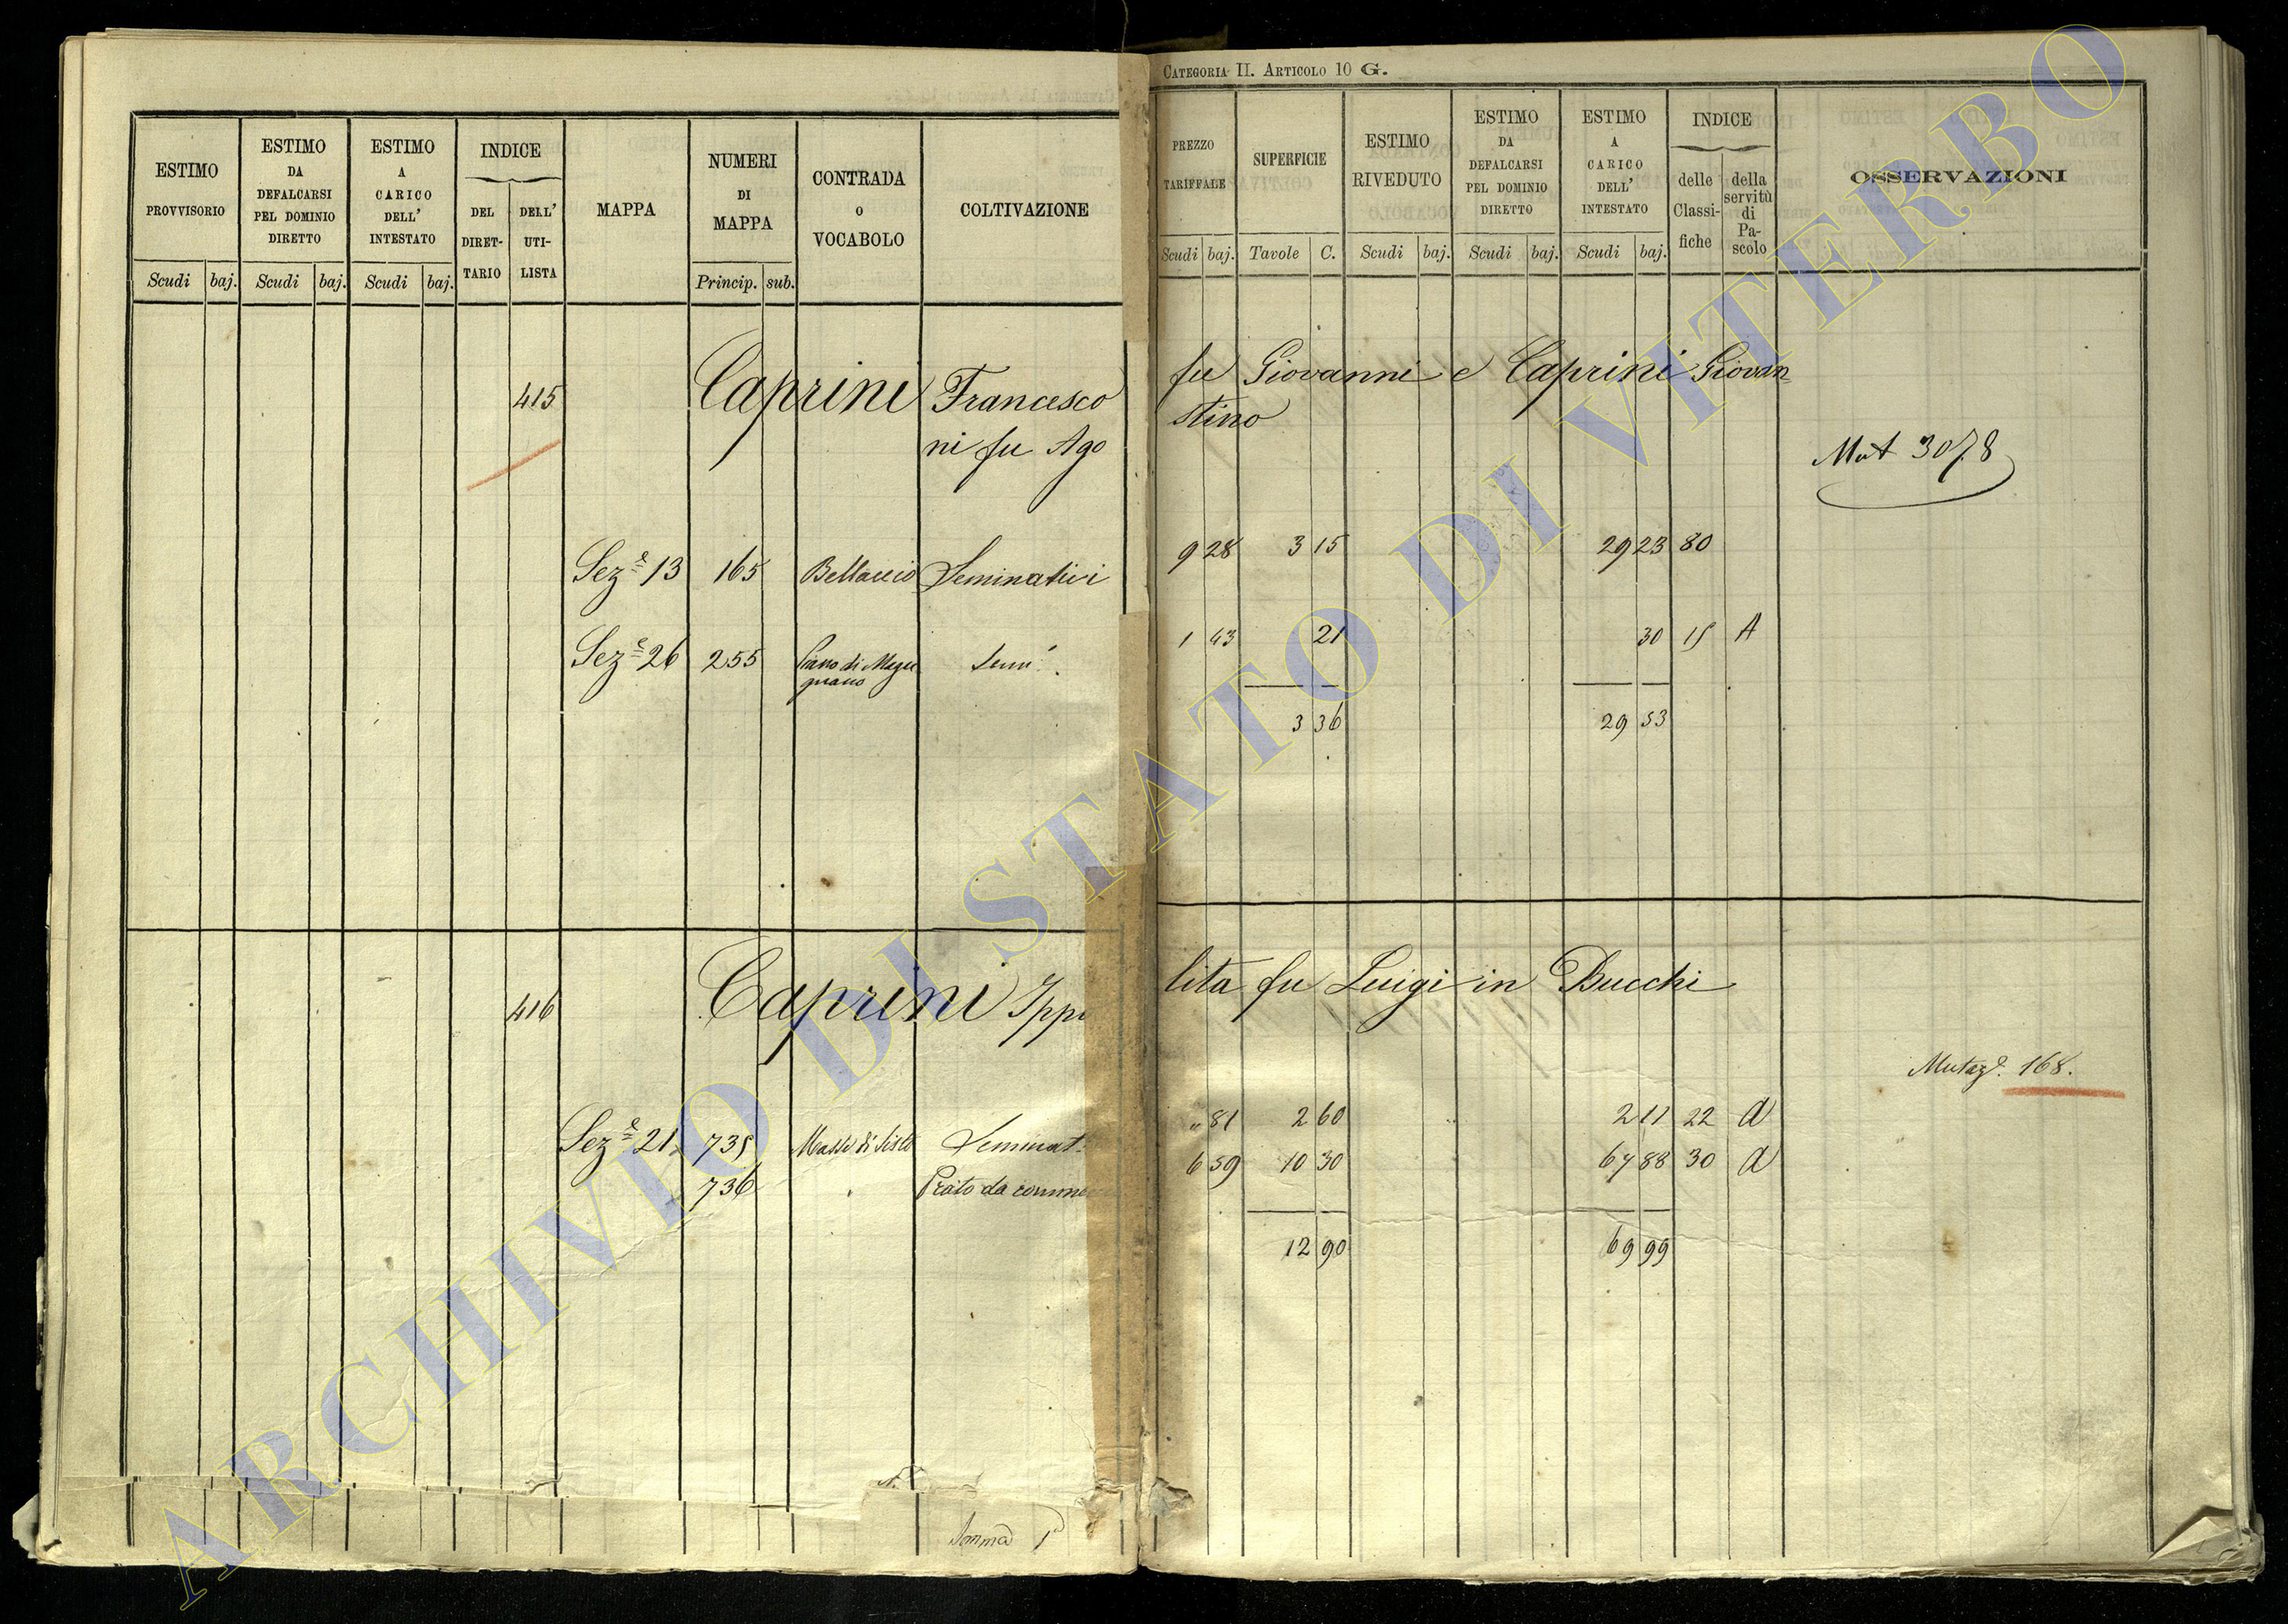 CATEGORIA II. ARTICOLO 10 G.
ESTIMO PROVVISORIO
ESTIMO DA DEFALCARSI PEL DOMINIO DIRETTO
ESTIMO A CARICO DELL' INTESTATO
INDICE
DEL DIRET-TARIO
DELL' UTI-LISTA
MAPPA
NUMERI DI MAPPA
CONTRADA O VOCABOLO
COLTIVAZIONE
Scudi baj. Scudi baj. Scudi baj. Princip. sub.
PREZZO TARIFFALE
SUPERFICIE
ESTIMO RIVEDUTO
ESTIMO DA DEFALCARSI PEL DOMINIO DIRETTO
ESTIMO A CARICO DELL' INTESTATO
INDICE
delle Classi-fiche
della servitù di Pa-scolo
OSSERVAZIONI
Scudi baj. Tavole C. Scudi baj. Scudi baj. Scudi baj.
415 Caprini Francesco fu Giovanni e Caprini Giovan
ni fu Ago stino
Mut 3078
Sez.e 13 165 Bellaccio Seminativi 9 28 3 15 29 23 80
Sez.e 26 255 Piano di Magu gnano Sem. 1 43 21 30 15 A
3 36 29 53
416 Caprini Ippo lita fu Luigi in Bucchi
Mutaz.e 168.
Sez.e 21 735 Masse di Sisto Seminat. " 81 2 60 2 11 22 A
736 " Prato da 6 59 10 30 67 88 30 A
12 90 69 99
Somma
ARCHIVIO DI STATO DI VITERBO